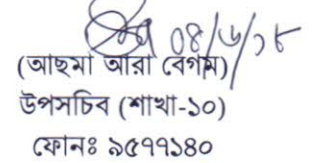 ০৪/৬/১৮
(আছমা আরা বেগম)
উপসচিব (শাখা-১০)
ফোনঃ ৯৫৭৭১৪০